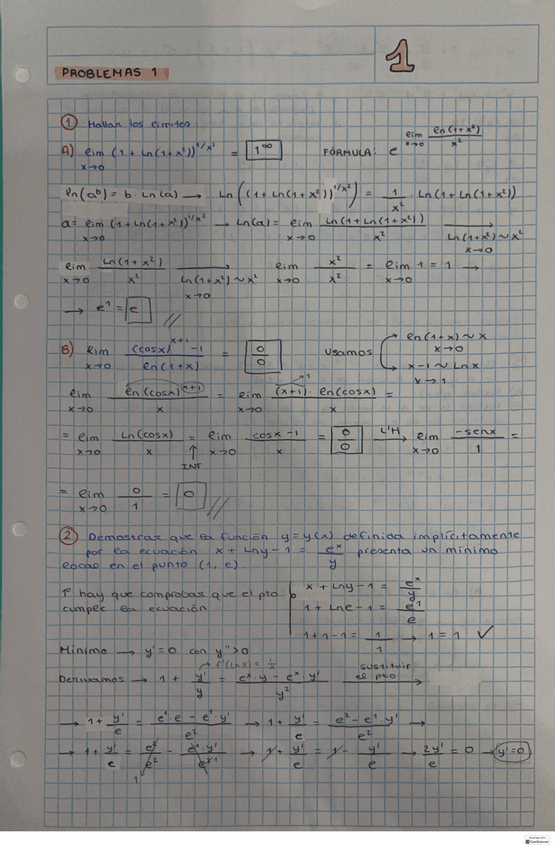 1
PROBLEMAS 1
① Hallar los límites:
A) lim x→0 (1 + Ln(1+x²))^(1/x²) = 1^∞ FÓRMULA: e^(lim x→0 ln(1+x²)/x²)
Ln(a^b) = b · Ln(a) → Ln((1 + Ln(1+x²))^(1/x²)) = 1/x² Ln(1 + Ln(1+x²))
a = lim x→0 (1 + Ln(1+x²))^(1/x²) → Ln(a) = lim x→0 Ln(1 + Ln(1+x²))/x² → Ln(1+x²) ~ x² x→0
lim x→0 Ln(1+x²)/x² → Ln(1+x²) ~ x² x→0 lim x→0 x²/x² = lim x→0 1 = 1 →
→ e¹ = e //
B) lim x→0 ((cosx)^(x+1) - 1)/ln(1+x) = 0/0 usamos ln(1+x) ~ x x→0
x-1 ~ Ln x x→1
lim x→0 ln(cosx)^(x+1)/x = lim x→0 (x+1) · ln(cosx)/x =
= lim x→0 Ln(cosx)/x = lim x→0 (cosx - 1)/x = 0/0 L'H → lim x→0 -senx/1 =
↑
INF
= lim x→0 0/1 = 0 //
② Demostrar que la función y = y(x) definida implícitamente
por la ecuación x + Lny - 1 = e^x/y presenta un mínimo
local en el punto (1, e).
1º hay que comprobar que el pto
cumple la ecuación
x + Lny - 1 = e^x/y
1 + Lne - 1 = e¹/e
1 + 1 - 1 = 1/1 → 1 = 1 ✓
Mínimo → y' = 0 con y'' > 0
f'(Lnx) = 1/x
Derivamos → 1 + y'/y = (e^x · y - e^x · y')/y² sustituir el pto →
→ 1 + y'/e = (e¹ · e - e¹ · y')/e² → 1 + y'/e = (e² - e¹ · y')/e² →
→ 1 + y'/e = e²/e² - e¹ · y'/e² → 1 + y'/e = 1 - y'/e → 2y'/e = 0 → y' = 0